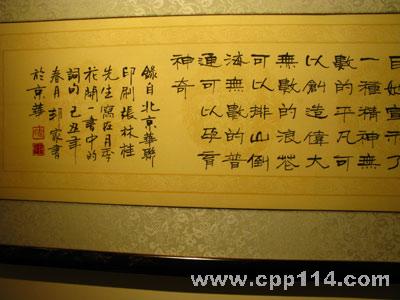 宣示了
一種精神無
數的平凡可
以創造偉大
無數的浪花
可以排山倒
海無數的普
通可以孕育
神奇
錄自北京華聯
印刷張林桂
先生寫在月季
花開一書中的
詞句己丑年
春月家書
於京華
www.cpp114.com